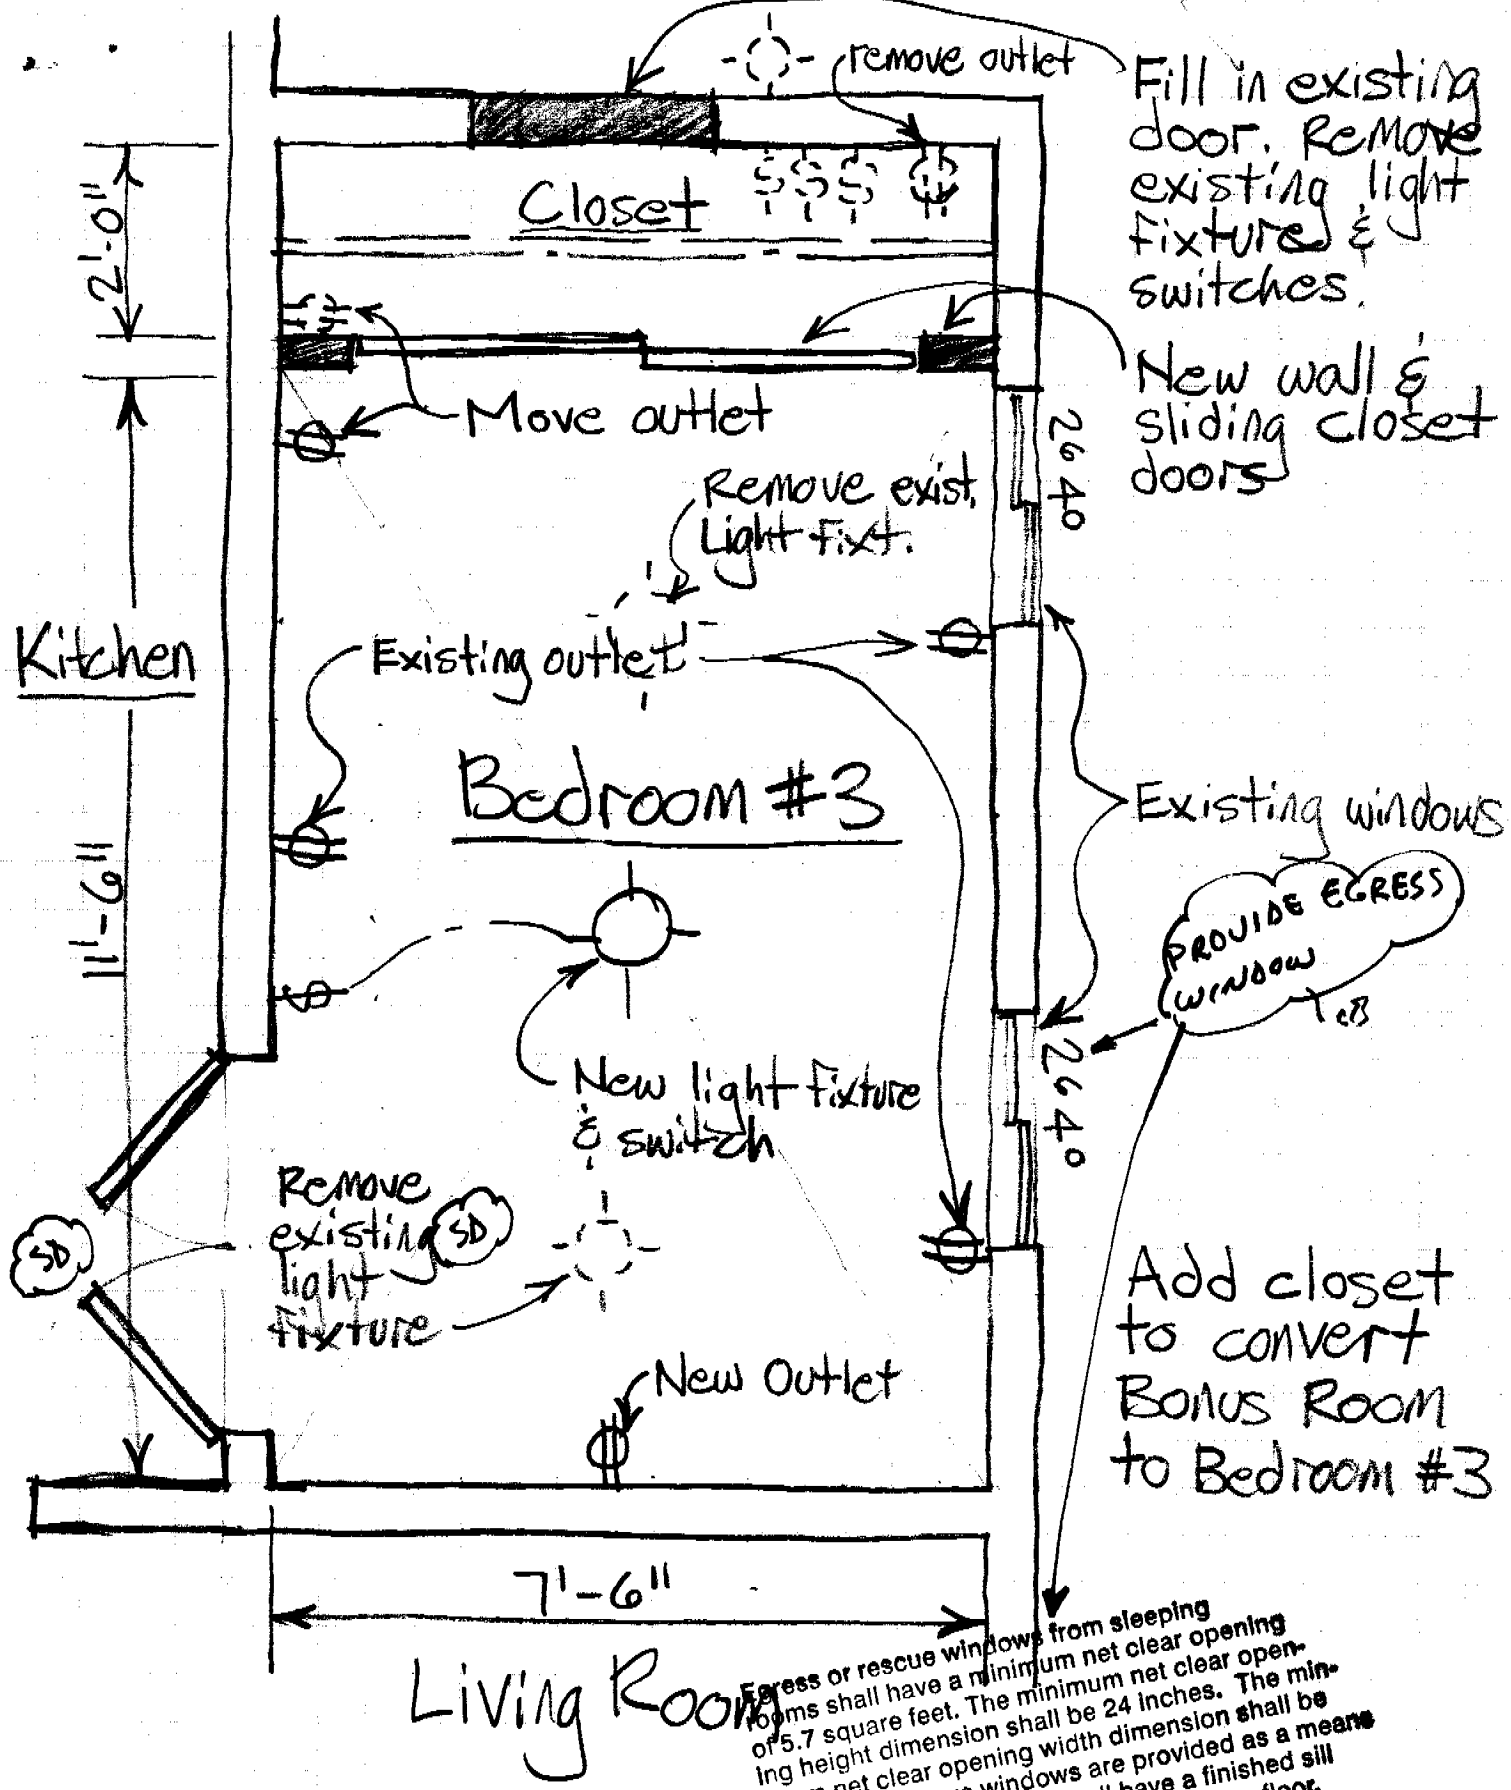 remove outlet
Fill in existing
door. Remove
existing light
fixture &
switches.
Closet
2'-0"
New wall &
sliding closet
doors
Move outlet
2640
Remove exist.
Light fixt.
Kitchen
Existing outlet
Bedroom #3
Existing windows
11'-6"
PROVIDE EGRESS
WINDOW
New light fixture
& switch
2640
Remove
existing
light
fixture
SD
SD
New Outlet
Add closet
to convert
Bonus Room
to Bedroom #3
7'-6"
Living Room
Egress or rescue windows from sleeping
rooms shall have a minimum net clear opening
of 5.7 square feet. The minimum net clear open-
ing height dimension shall be 24 inches. The min-
net clear opening width dimension shall be
windows are provided as a means
have a finished sill
floor.